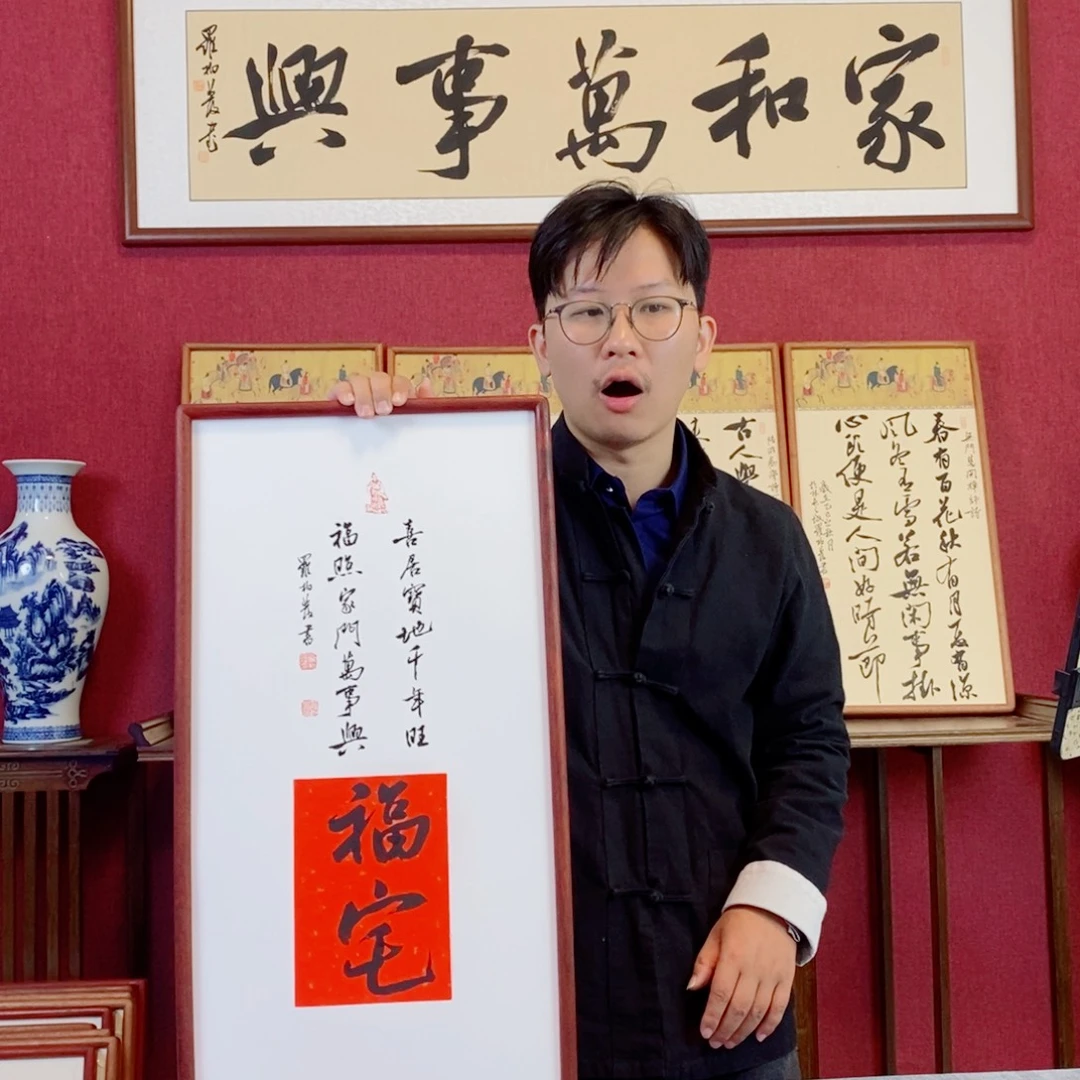 家和萬事興
喜居寶地千年旺
福照家門萬事興
福宅
古人與
無門慧開禪師詩
春有百花秋有月夏有涼
風冬有雪若無閑事掛
心頭便是人间好時節